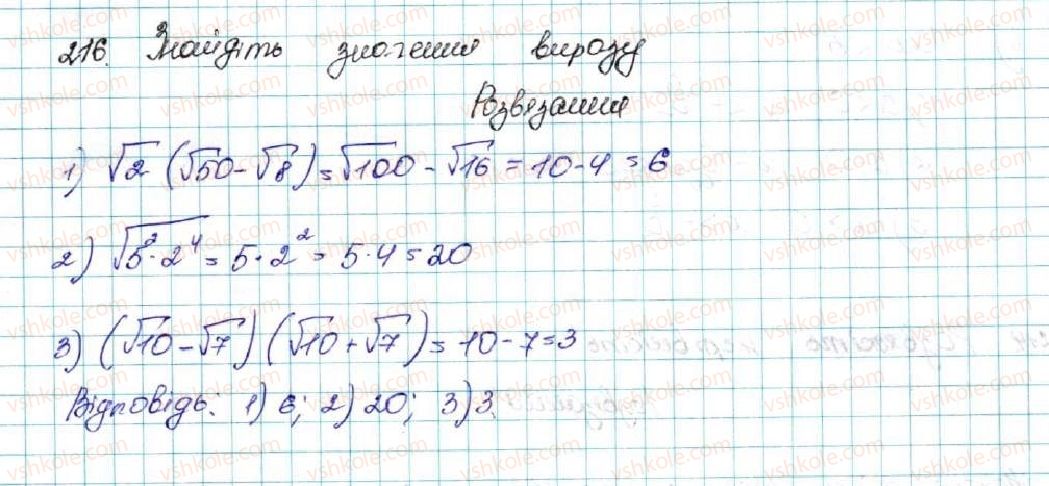 216. Знайдіть значення виразу
Розвязання
1) √2 (√50 - √8) = √100 - √16 = 10 - 4 = 6
2) √5²·2⁴ = 5·2² = 5·4 = 20
3) (√10 - √7) (√10 + √7) = 10 - 7 = 3
Відповідь: 1) 6; 2) 20; 3) 3.